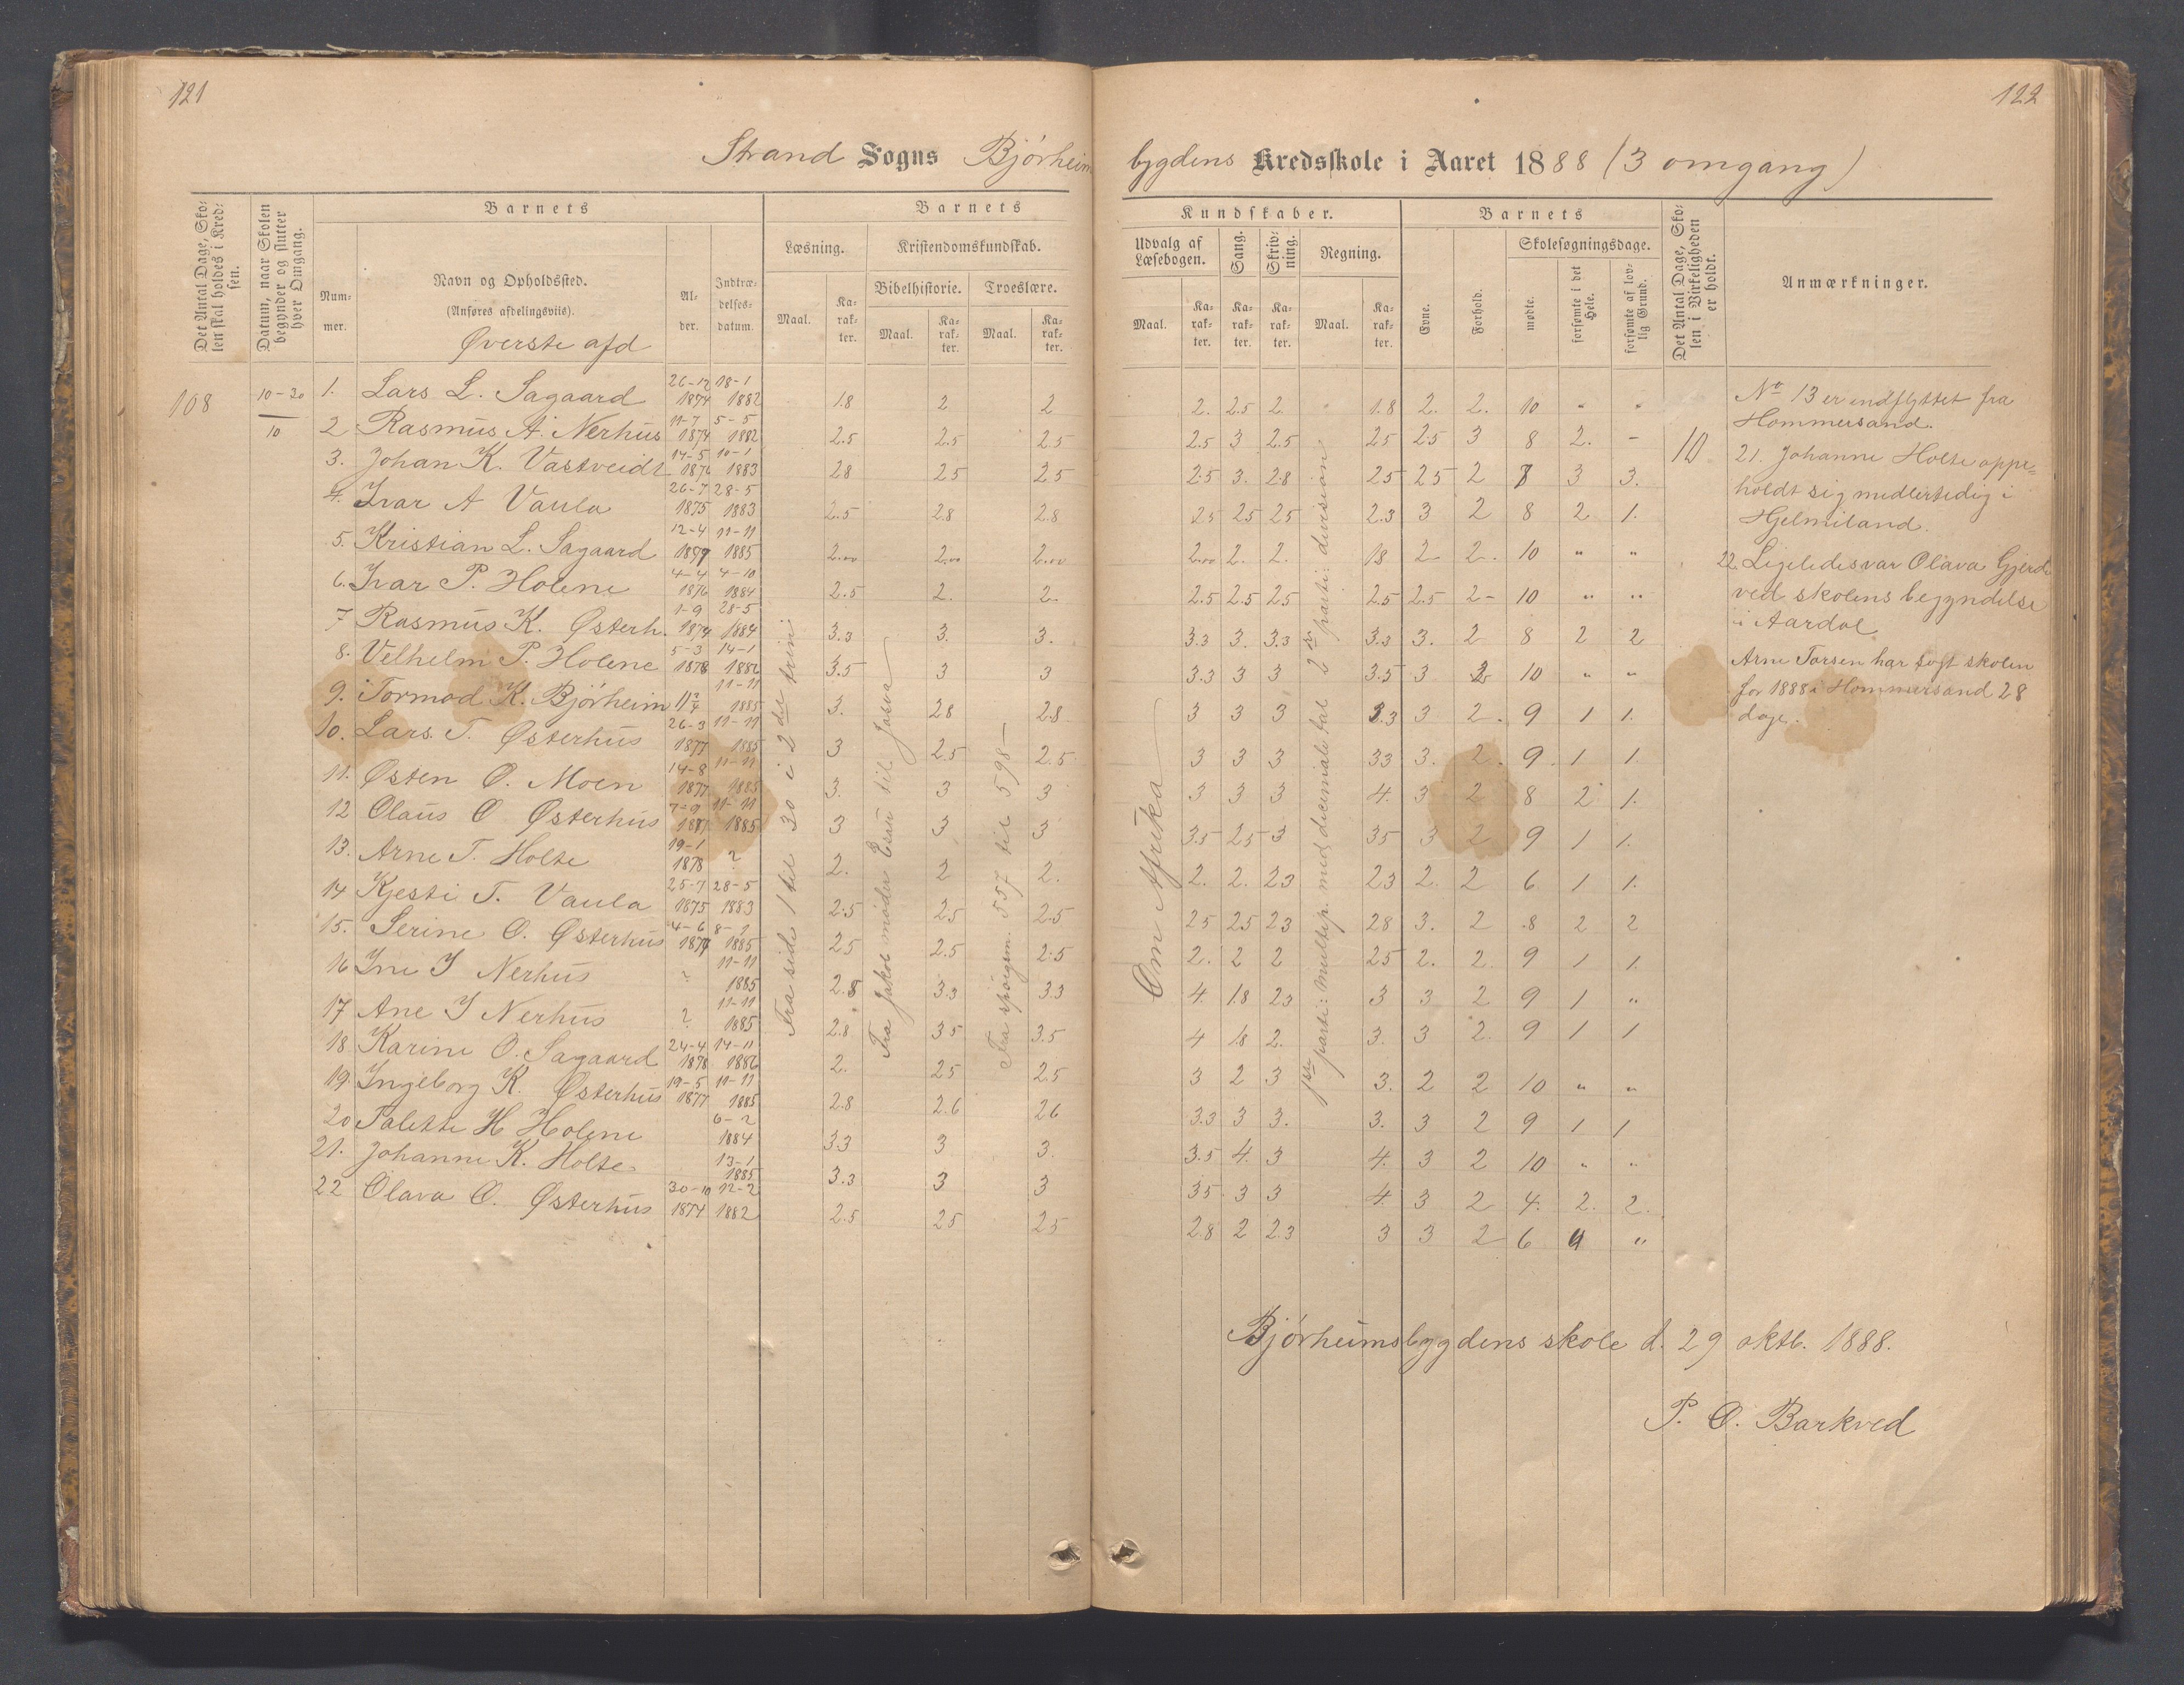 121
122
Strand Sogns Bjørheim bygdens Kredsskole i Aaret 1888 (3 omgang)
Det Antal Dage, Skolen skal holdes i Kredsen.
Datum, naar Skolen begynder og slutter hver Omgang.
Barnets
Nummer.
Navn og Opholdssted.
(Anføres afdelingsviis).
Øverste afd
Alder.
Indtrædelsesdatum.
Barnets
Læsning.
Kristendomskundskab.
Bibelhistorie.
Troeslære.
Maal.
Karakter.
Maal.
Karakter.
Maal.
Karakter.
Kundskaber.
Udvalg af Læsebogen.
Sang.
Skrivning.
Regning.
Maal.
Karakter.
Karakter.
Karakter.
Maal.
Karakter.
Barnets
Evne.
Forhold.
Skolesøgningsdage.
mødte.
forsømte i det Hele.
forsømte af lovlig Grund.
Det Antal Dage, Skolen i Virkeligheden er holdt.
Anmærkninger.
108
10-30
10
1. Lars L. Sagaard 26-12 1874 18-1 1882 1.8 2 2 2. 2.5 2. 1.8 2. 2. 10 " "
2 Rasmus A. Nerhus 11-7 1874 5-5 1882 2.5 2.5 2.5 2.5 3 2.5 25 25 3 8 2. -
3. Johan K. Vastveidt 14-5 1876 10-1 1883 28 25 25 2.5 3. 2.8 25 25 2 7 3 3.
4. Ivar A Vaula 26-7 1875 28-5 1883 2.5 2.8 2.8 25 25 25 2.3 3 2 8 2 1.
5. Kristian L. Sagaard 12-4 1877 11-11 1885 2.00 2.00 2.00 2.00 2. 2. 18 2 2. 10 " "
6. Ivar P. Holene 4-4 1876 4-10 1884 2.5 2. 2. 2.5 2.5 25 2.5 2.5 2- 10 " "
7 Rasmus K. Østerh. 1-9 1874 28-5 1884 3.3 3. 3. 3.3 3. 3.3 3.3 3. 2 8 2 2
8. Velhelm P. Holene 5-3 1878 14-1 1886 3.5 3 3 3.3 3 3 3.5 3 2 10 " "
9. Tormod K. Bjørheim 11-11 1885 3. 28 2.8 3 3 3 3.3 3 2. 9 1 1.
10. Lars. T. Østerhus 26-3 1877 11-11 1885 3 2.5 2.5 3 3 3 33 3. 2. 9. 1 1.
11. Østen O. Moen 14-8 1877 11-11 1885 3. 3 3 3 3 3 4. 3 2 8 2 1.
12 Olaus O Østerhus 7-9 1877 11-11 1885 3 3 3 3.5 25 3 35 3 2 9 1 1.
13. Arne T. Holte 19-1 1878 ? 2. 2 2. 2. 2. 23 23 2. 2 6 1 1.
14 Kjesti T. Vaula 25-7 1875 28-5 1883 2.5 25 2.5 25 25 23 28 3. 2 8 2 2
15. Serine O. Østerhus 4-6 1874 1885 25 2.5 2.5 2. 2 2 25 2. 2. 9 1 1.
16 Ine I Nerhus ? 11-11 1885 2.8 3.3 3.3 4. 1.8 23 3 3 2 9 1 "
17 Ane I Nerhus ? 11-11 1885 2.8 35 3.5 4 1.8 2. 3. 3 2. 9 1 1
18. Karine O. Sagaard 24-4 1878 14-11 1886 2. 25 25 3 2 3 3. 2 2 10 " "
19. Ingeborg K. Østerhus 19-5 1877 11-11 1885 2.8 2.6 26 3.3 3 3. 3. 3 2 9 1 1
20 Palette H Holene 6-2 1884 3.3 3 3. 3.5 4. 3 4. 3 2 10 " "
21. Johanne K. Holte 13-1 1885 3.3 3 3 35 3 3 4. 3 2 4. 2. 2.
22 Olava O. Østerhus 30-10 1874 12-2 1882 2.5 25 25 2.8 2 2.3 3 3 2 6 "
Fra side 1 til 30 i 2det trin
Fra Jakob møder Esau til Josva
Fra spørgsm. 557 til 598
Om Afrika
1ste parti: multip. med decimale tal 2det parti: division
10
No 13 er indflyttet fra
Hommersand.
21. Johanne Holte oppe=
holdt sig midlertidig i
Hjelmiland.
22. Ligeledes var Olava Gjerde
ved skolens begyndelse
i Aardal
Arne Torsen har søgt skolen
for 1888 i Hommersand 28
dage.
Bjørheimsbygdens skole d. 29 oktb. 1888.
P. O. Barkved